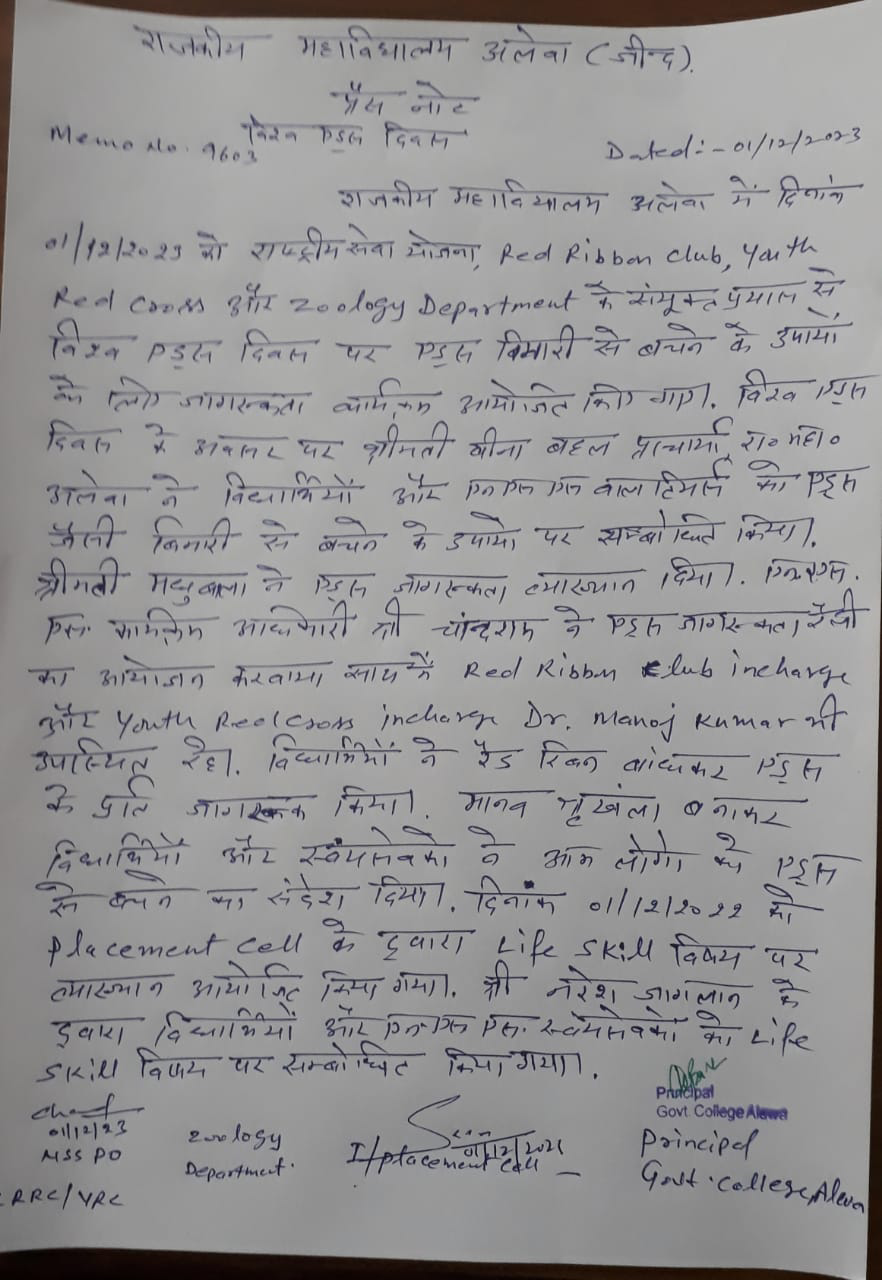 राजकीय महाविद्यालय अलेवा (जीन्द).
प्रैस नोट
विश्व एड्स दिवस
Memo No. 9603
Dated:- 01/12/2023
राजकीय महाविद्यालय अलेवा में दिनांक
01/12/2023 को राष्ट्रीय सेवा योजना, Red Ribbon Club, Youth
Red Cross और Zoology Department के संयुक्त प्रयास से
विश्व एड्स दिवस पर एड्स बिमारी से बचने के उपायों
के लिए जागरूकता कार्यक्रम आयोजित किए गए. विश्व एड्स
दिवस के अवसर पर श्रीमती बीना बहल प्राचार्या, रा० महा०
अलेवा ने विद्यार्थियों और एन एस एस वालंटियर्स को एड्स
जैसी बिमारी से बचने के उपायों पर सम्बोधित किया.
श्रीमती मधुबाला ने एड्स जागरूकता व्याख्यान दिया. एन.एस.
एस. कार्यक्रम अधिकारी श्री चांदराम ने एड्स जागरूकता रैली
का आयोजन करवाया साथ में Red Ribbon Club incharge
और Youth Red Cross incharge Dr. Manoj Kumar भी
उपस्थित रहे. विद्यार्थियों ने रैड रिबन बांधकर एड्स
के प्रति जागरूक किया. मानव श्रृंखला बनाकर
विद्यार्थियों और स्वंयसेवको ने आम लोगो को एड्स
से बचने का संदेश दिया. दिनांक 01/12/2022 को
Placement Cell के द्वारा Life Skill विषय पर
व्याख्यान आयोजित किया गया. श्री नरेश जागलान के
द्वारा विद्यार्थियों और एन एस एस. स्वंयसेवको को Life
Skill विषय पर सम्बोधित किया गया.
Principal
Govt. College Alewa
01/12/23
NSS PO
Zoology
Department.
I/Placement Cell
Principal
Govt. College, Alewa
RRC/YRC